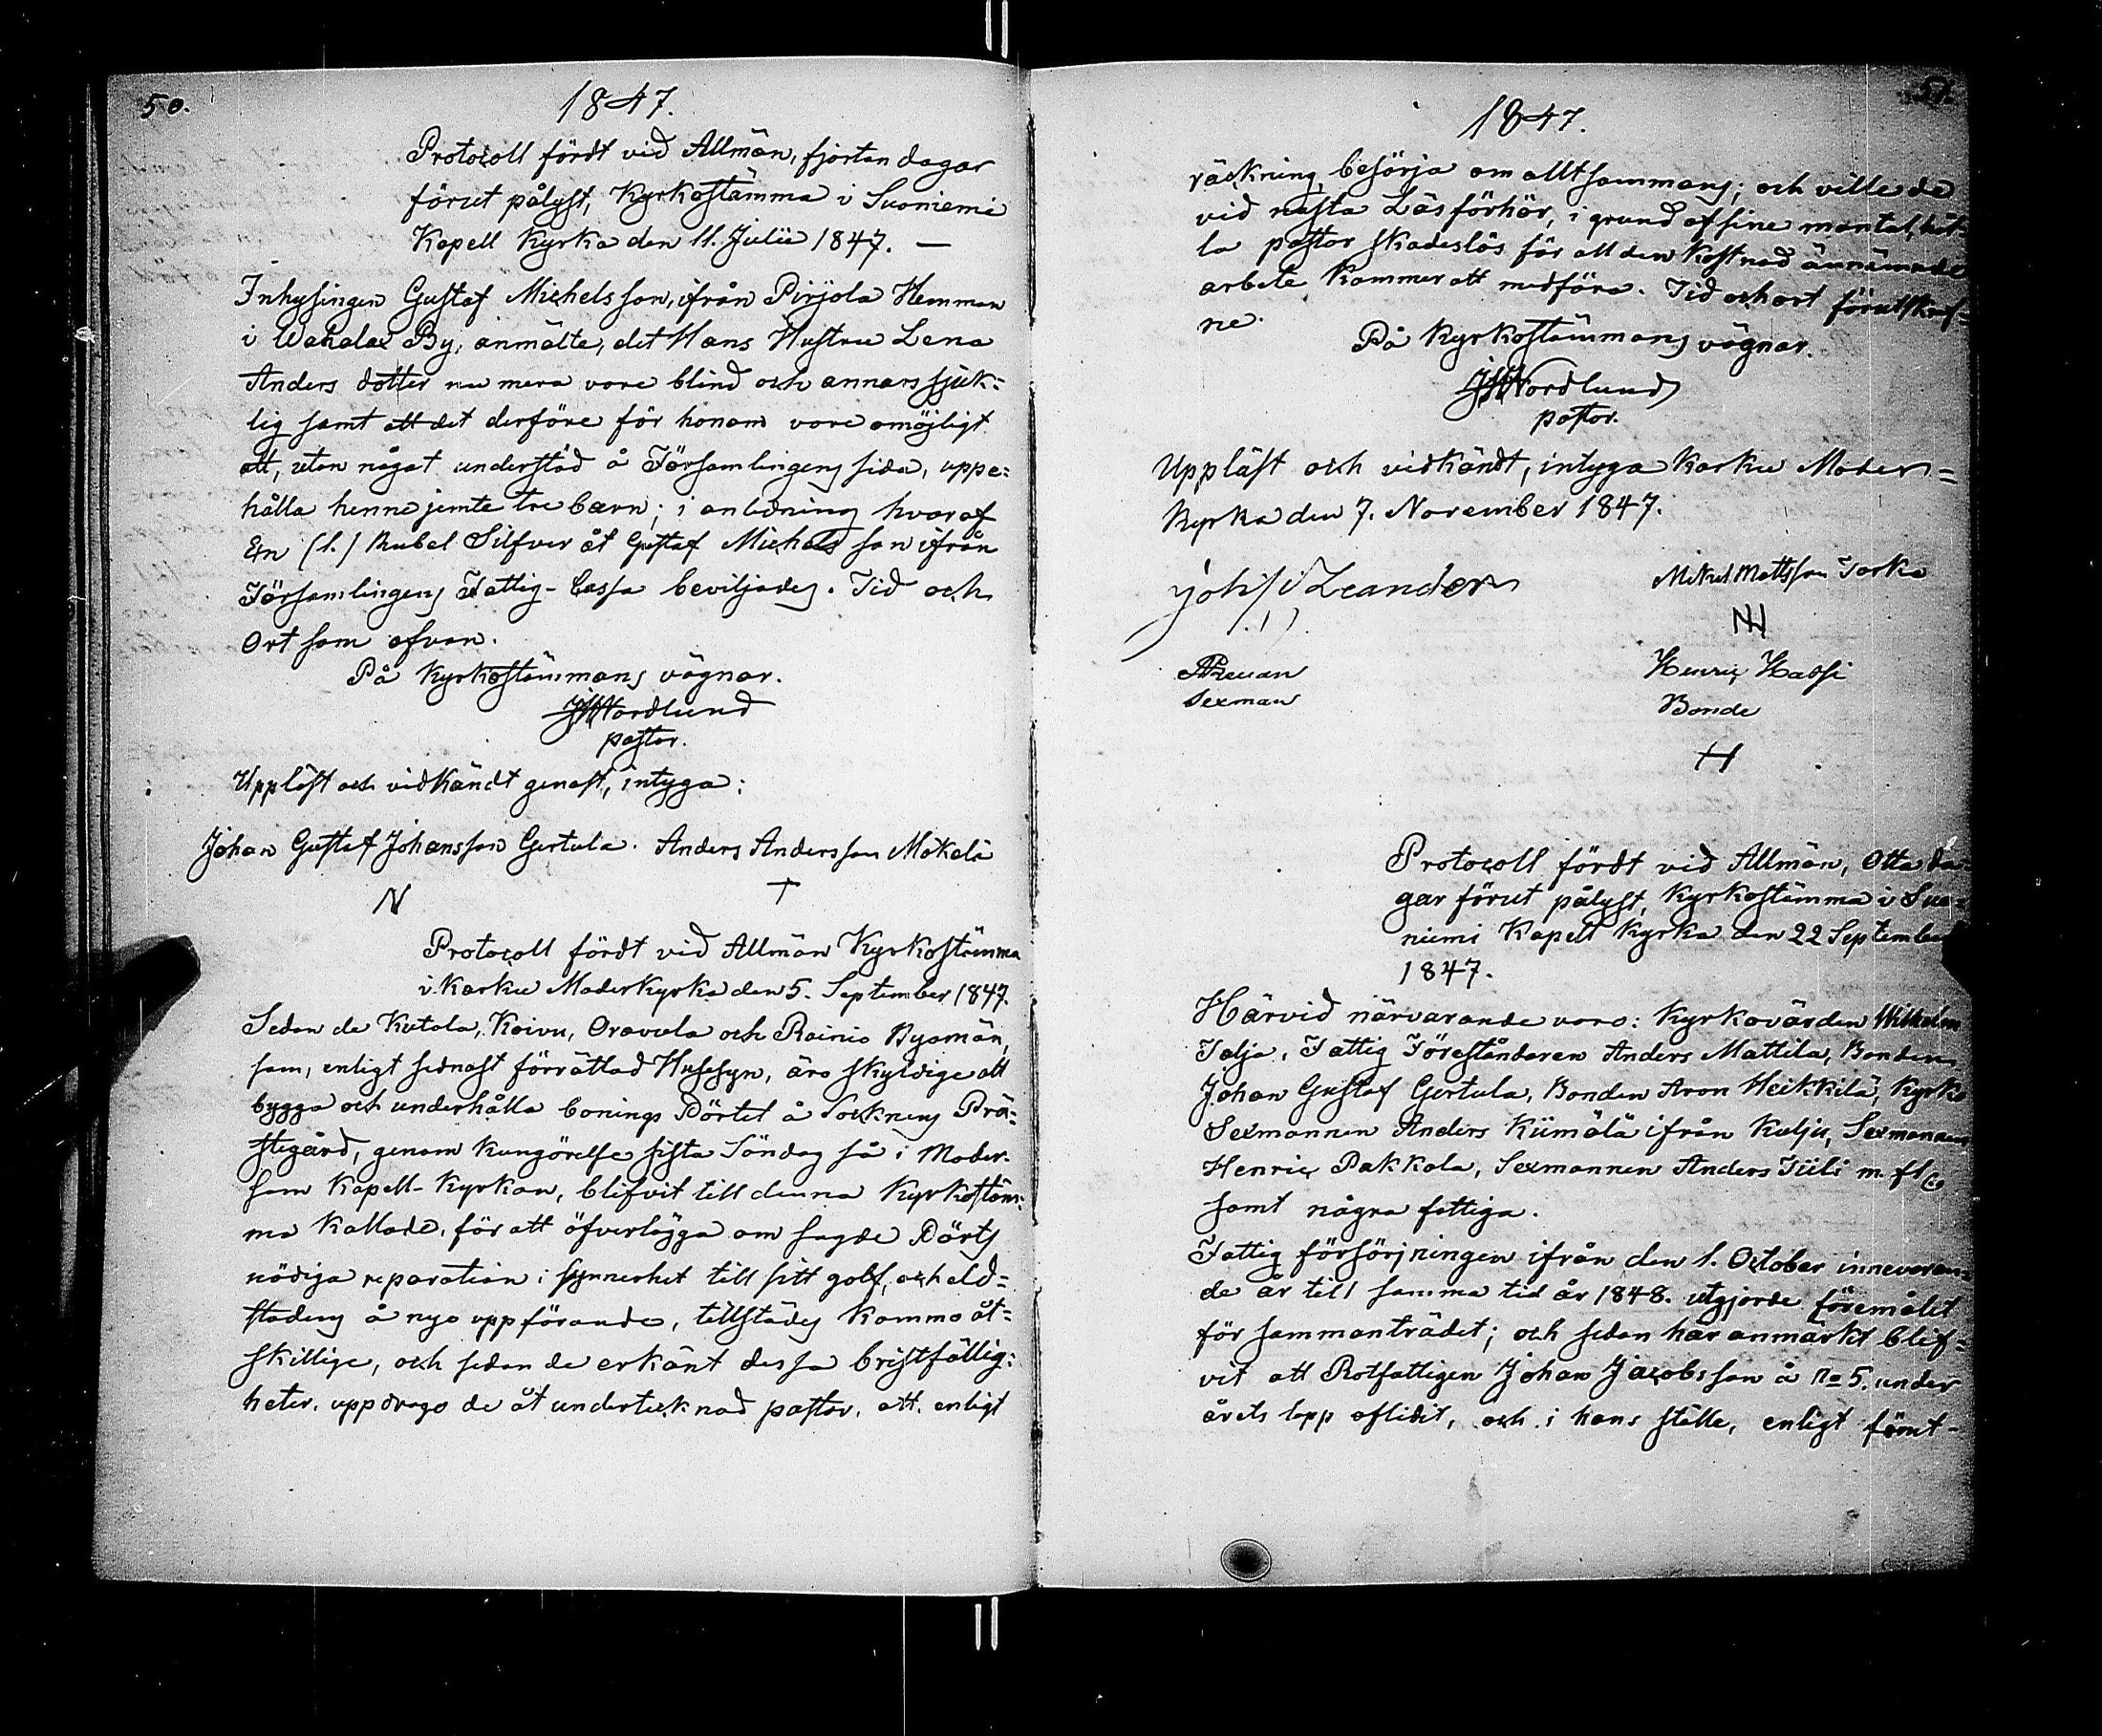 50.
1847.
Protocoll fördt vid Allmän, fjorton dagar
förut pålyst, Kyrkostämma i Suoniemi
Kapell Kyrka den 11. Julii 1847. —
Inhysingen Gustaf Michelsson, ifrån Pirjola Hemman
i Wahalax By, anmälte, det Hans Hustru Lena
Anders dotter nu mera vore blind och annars sjuk=
lig samt att det derföre för honom vore omöjligt
att, utan något understöd å Församlingens sida, uppe=
hålla henne jemte tre barn; i anledning hvaraf
En (1.) Rubel Silfver åt Gustaf Michelsson ifrån
Församlingens Fattig-Cassa beviljades. Tid och
Ort som ofvan.
På Kyrkostämmans vägnar.
Nordlund
pastor.
Uppläst och vidkändt genast, intyga:
Johan Gustaf Johansson Gertula. Anders Andersson Mäkelä
N +
Protocoll fördt vid Allmän Kyrkostämma
i Karku Moderkyrka den 5. September 1847.
Sedan de Kutala, Koivu, Oravula och Rainio Byamän,
som, enligt sednast förrättad Husesyn, äro skyldige att
bygga och underhålla bonings Pörtet å Socknens Prä=
stegård, genom kungörelse sista Söndag så i Moder-
som Kapell-Kyrkan, blifvit till denna Kyrkostäm=
ma kallade, för att öfverlägga om sagde Pörts
nödiga reparation i synnerhet till sitt golf, och eld=
stadens å nyo uppförande, tillstädes kommo åt=
skillige, och sedan de erkänt dessa bristfällig=
heter, uppdrogo de åt undertecknad pastor, att, enligt
51.
1847.
räckning, besörja om alltsammans; och ville de
vid nästa Läsförhör, i grund af sine mantal, hål=
la pastor skadeslös för all den kostnad ännämnde
arbete kommer att medföra. Tid och ort förutskref=
ne.
På Kyrkostämmans vägnar.
Nordlund
pastor.
Uppläst och vidkändt, intyga Karku Moder=
Kyrka den 7. November 1847.
Leander Mikel Mattsson Jorka
Henric Hassi
Sexman Bonde
H
Protocoll fördt vid Allmän, Otta da=
gar förut pålyst, Kyrkostämma i Suo=
niemi Kapell Kyrka den 22 September
1847.
Härvid närvarande voro: Kyrkovärden Wilhelm
Talja, Fattig Föreståndaren Anders Mattila, Bonden
Johan Gustaf Gertula, Bonden Aron Heikkilä, Kyrko
Sexmannen Anders Kiimälä ifrån Kulju, Sexmannen
Henric Pakkala, Sexmannen Anders Tiili m. fl.
samt några fattiga.
Fattig försörjningen ifrån den 1. October innevaran=
de år till samma tid år 1848. utgjorde föremålet
för sammanträdet; och sedan här anmärkt blif=
vit att Rotfattigen Johan Jacobsson å No 5. under
årets lopp aflidit, och i hans ställe, enligt fömt-